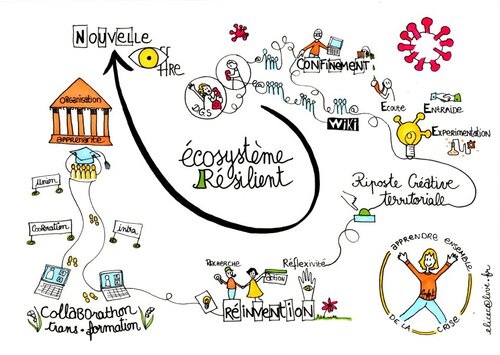 NOUVELLE
OFFRE
CONFINEMENT
DGS
WIKI
Ecoute
Entraide
Expérimentation
Organisation
apprenante
écosystème
Résilient
Riposte Créative
territoriale
union
Coopération
intra
COLLABOrathon
trans-formation
Recherche
action
Réflexivité
RÉINVENTION
apprendre ensemble
DE LA CRISE